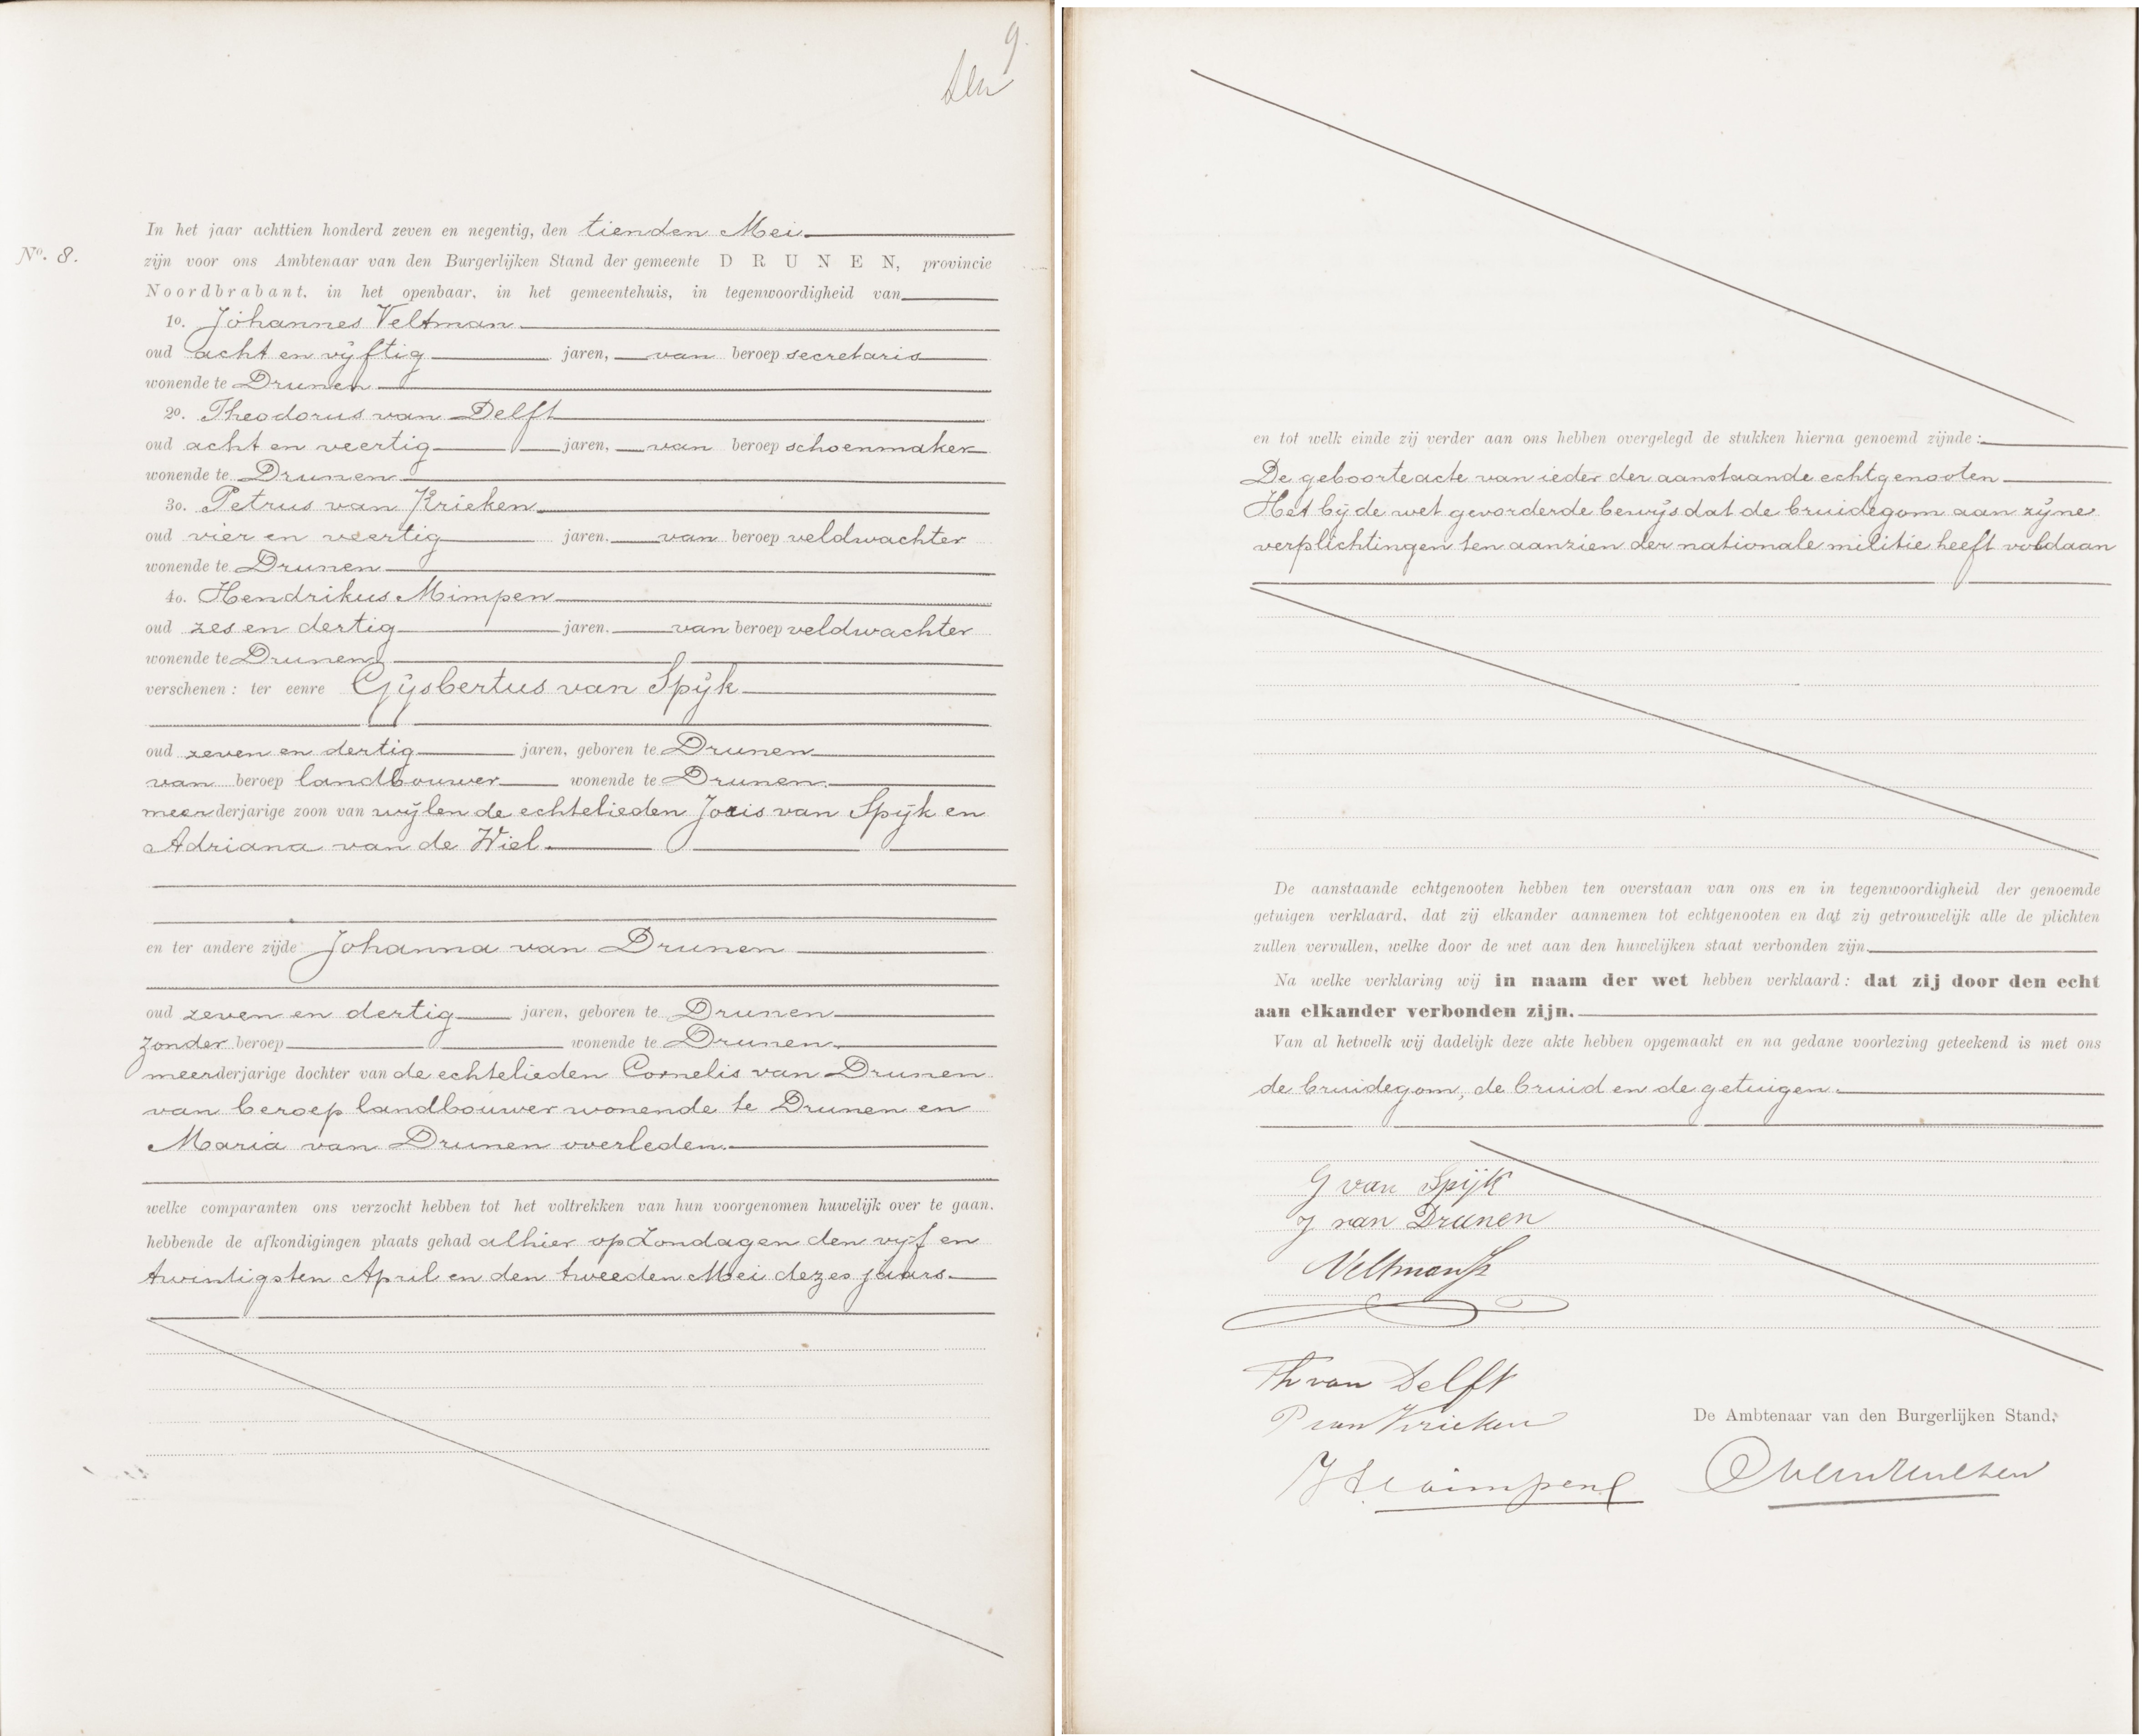 9.
No. 8.
In het jaar achttien honderd zeven en negentig, den tienden Mei
zijn voor ons Ambtenaar van den Burgerlijken Stand der gemeente DRUNEN, provincie
Noordbrabant, in het openbaar, in het gemeentehuis, in tegenwoordigheid van
1o. Johannes Veltman
oud acht en vijftig jaren, van beroep secretaris
wonende te Drunen
2o. Theodorus van Delft
oud acht en veertig jaren, van beroep schoenmaker
wonende te Drunen
3o. Petrus van Krieken
oud vier en veertig jaren, van beroep veldwachter
wonende te Drunen
4o. Hendrikus Mimpen
oud zes en dertig jaren, van beroep veldwachter
wonende te Drunen
verschenen: ter eenre Gijsbertus van Spijk
oud zeven en dertig jaren, geboren te Drunen
van beroep landbouwer wonende te Drunen
meerderjarige zoon van wijlen de echtelieden Joris van Spijk en
Adriana van de Wiel.
en ter andere zijde Johanna van Drunen
oud zeven en dertig jaren, geboren te Drunen
zonder beroep wonende te Drunen.
meerderjarige dochter van de echtelieden Cornelis van Drunen
van beroep landbouwer wonende te Drunen en
Maria van Drunen overleden.
welke comparanten ons verzocht hebben tot het voltrekken van hun voorgenomen huwelijk over te gaan.
hebbende de afkondigingen plaats gehad alhier op Zondagen den vijf en
twintigsten April en den tweeden Mei dezes jaars.
en tot welk einde zij verder aan ons hebben overgelegd de stukken hierna genoemd zijnde:
De geboorteacte van ieder der aanstaande echtgenooten
Het bij de wet gevorderde bewijs dat de bruidegom aan zijne
verplichtingen ten aanzien der nationale militie heeft voldaan
De aanstaande echtgenooten hebben ten overstaan van ons en in tegenwoordigheid der genoemde
getuigen verklaard, dat zij elkander aannemen tot echtgenooten en dat zij getrouwelijk alle de plichten
zullen vervullen, welke door de wet aan den huwelijken staat verbonden zijn.
Na welke verklaring wij in naam der wet hebben verklaard: dat zij door den echt
aan elkander verbonden zijn.
Van al hetwelk wij dadelijk deze akte hebben opgemaakt en na gedane voorlezing geteekend is met ons
de bruidegom, de bruid en de getuigen.
G van Spijk
J van Drunen
Veltman
Th van Delft
P van Krieken
De Ambtenaar van den Burgerlijken Stand,
H Mimpen